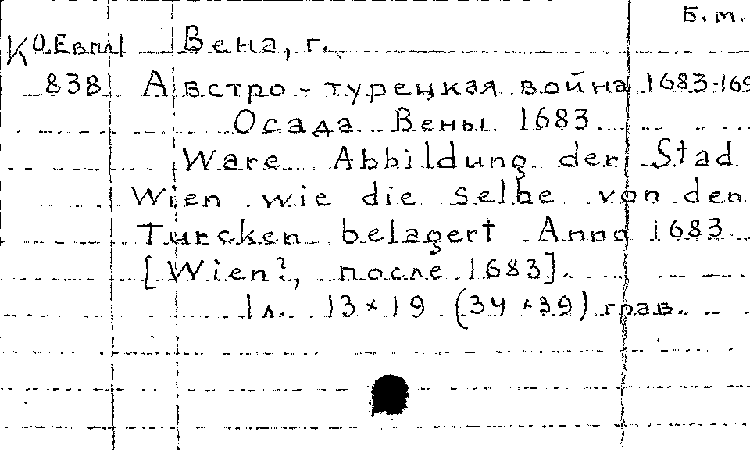 Б.т.
К О.Евпл1 Вена, г.
838 Австро-турецкая война 1683-169
Осада Вены 1683
Ware Abbildung der Stad
Wien wie die selbe von den
Turcken belagert Anno 1683
[Wien?, после 1683].
1 л. 13×19 (34×39) грав.